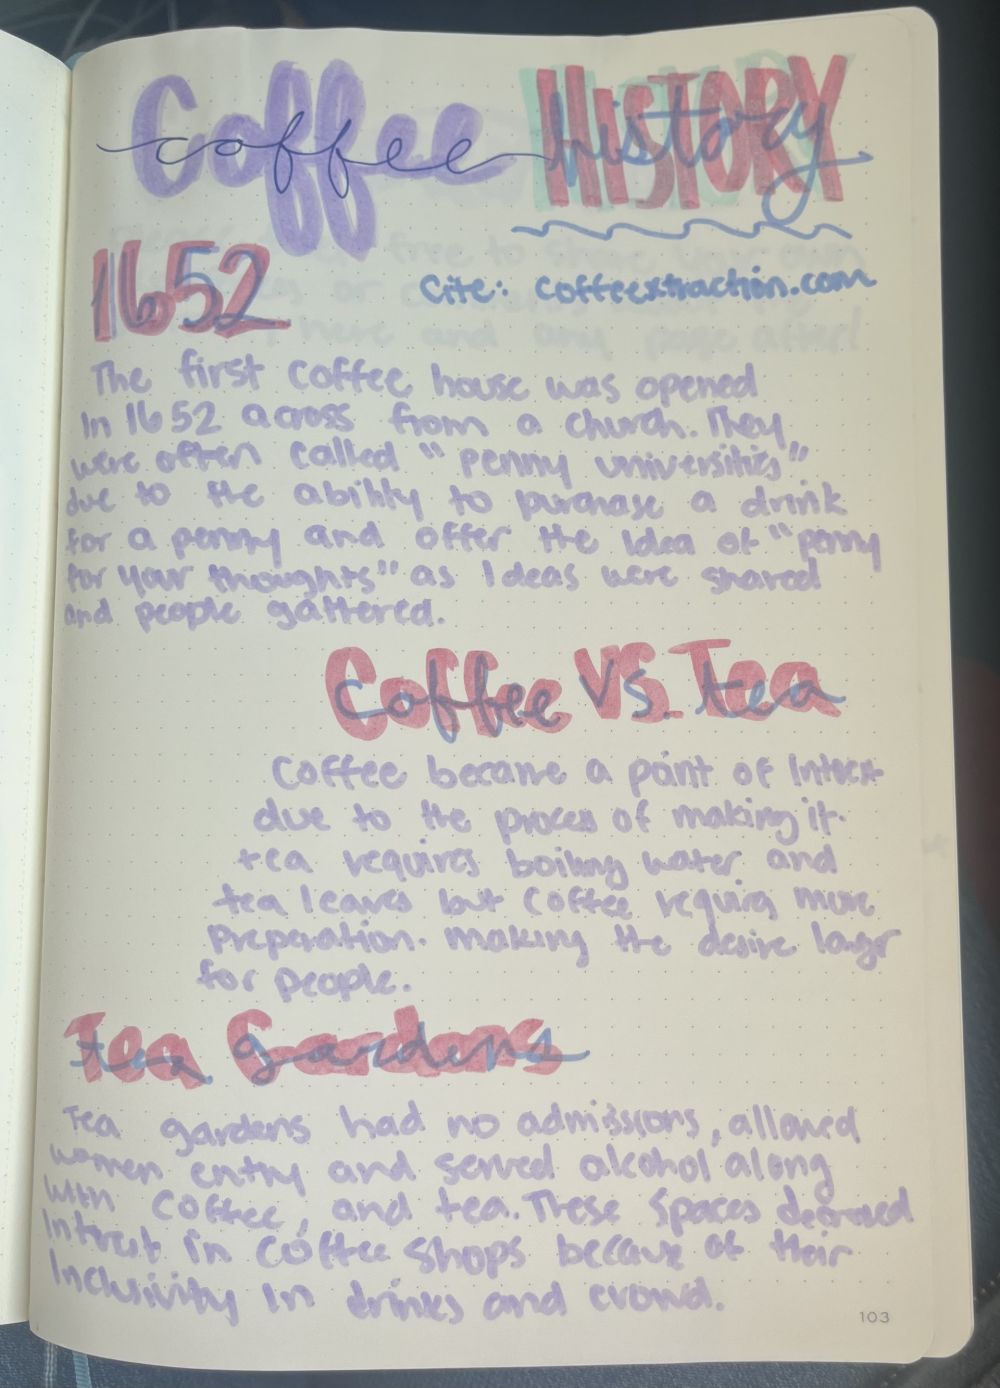 Coffee HISTORY
coffee history
1652
Cite: coffeextraction.com
The first coffee house was opened
in 1652 across from a church. They
were often called "penny universities"
due to the ability to purchase a drink
for a penny and offer the idea of "penny
for your thoughts" as ideas were shared
and people gathered.
Coffee VS. Tea
coffee vs. tea
Coffee became a point of
due to the process of making it.
tea requires boiling water and
tea leaves but coffee more
Preperation. making the desire
for people.
Tea Gardens
tea gardens
Tea gardens had no admissions, allowed
women entry and served alcohol along
with coffee, and tea. These spaces
in coffee shops because of their
inclusivity in drinks and crowd.
103